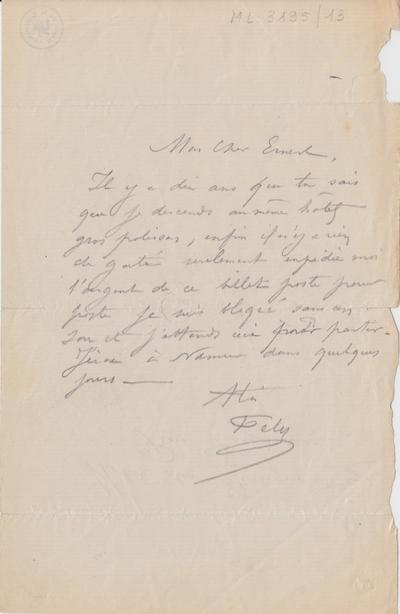 ML. 3195/13
Mon Cher Ernest,
Il y a dix ans que tu sais
que je descends au même hôtel
gros polisson, enfin il n'y a rien
de gaté seulement expédie moi
l'argent de ce billet poste pour
poste je suis bloqué sans un
sou et j'attends ici pour partir.
Je serai à Namur dans quelques
jours —
A toi
Fély